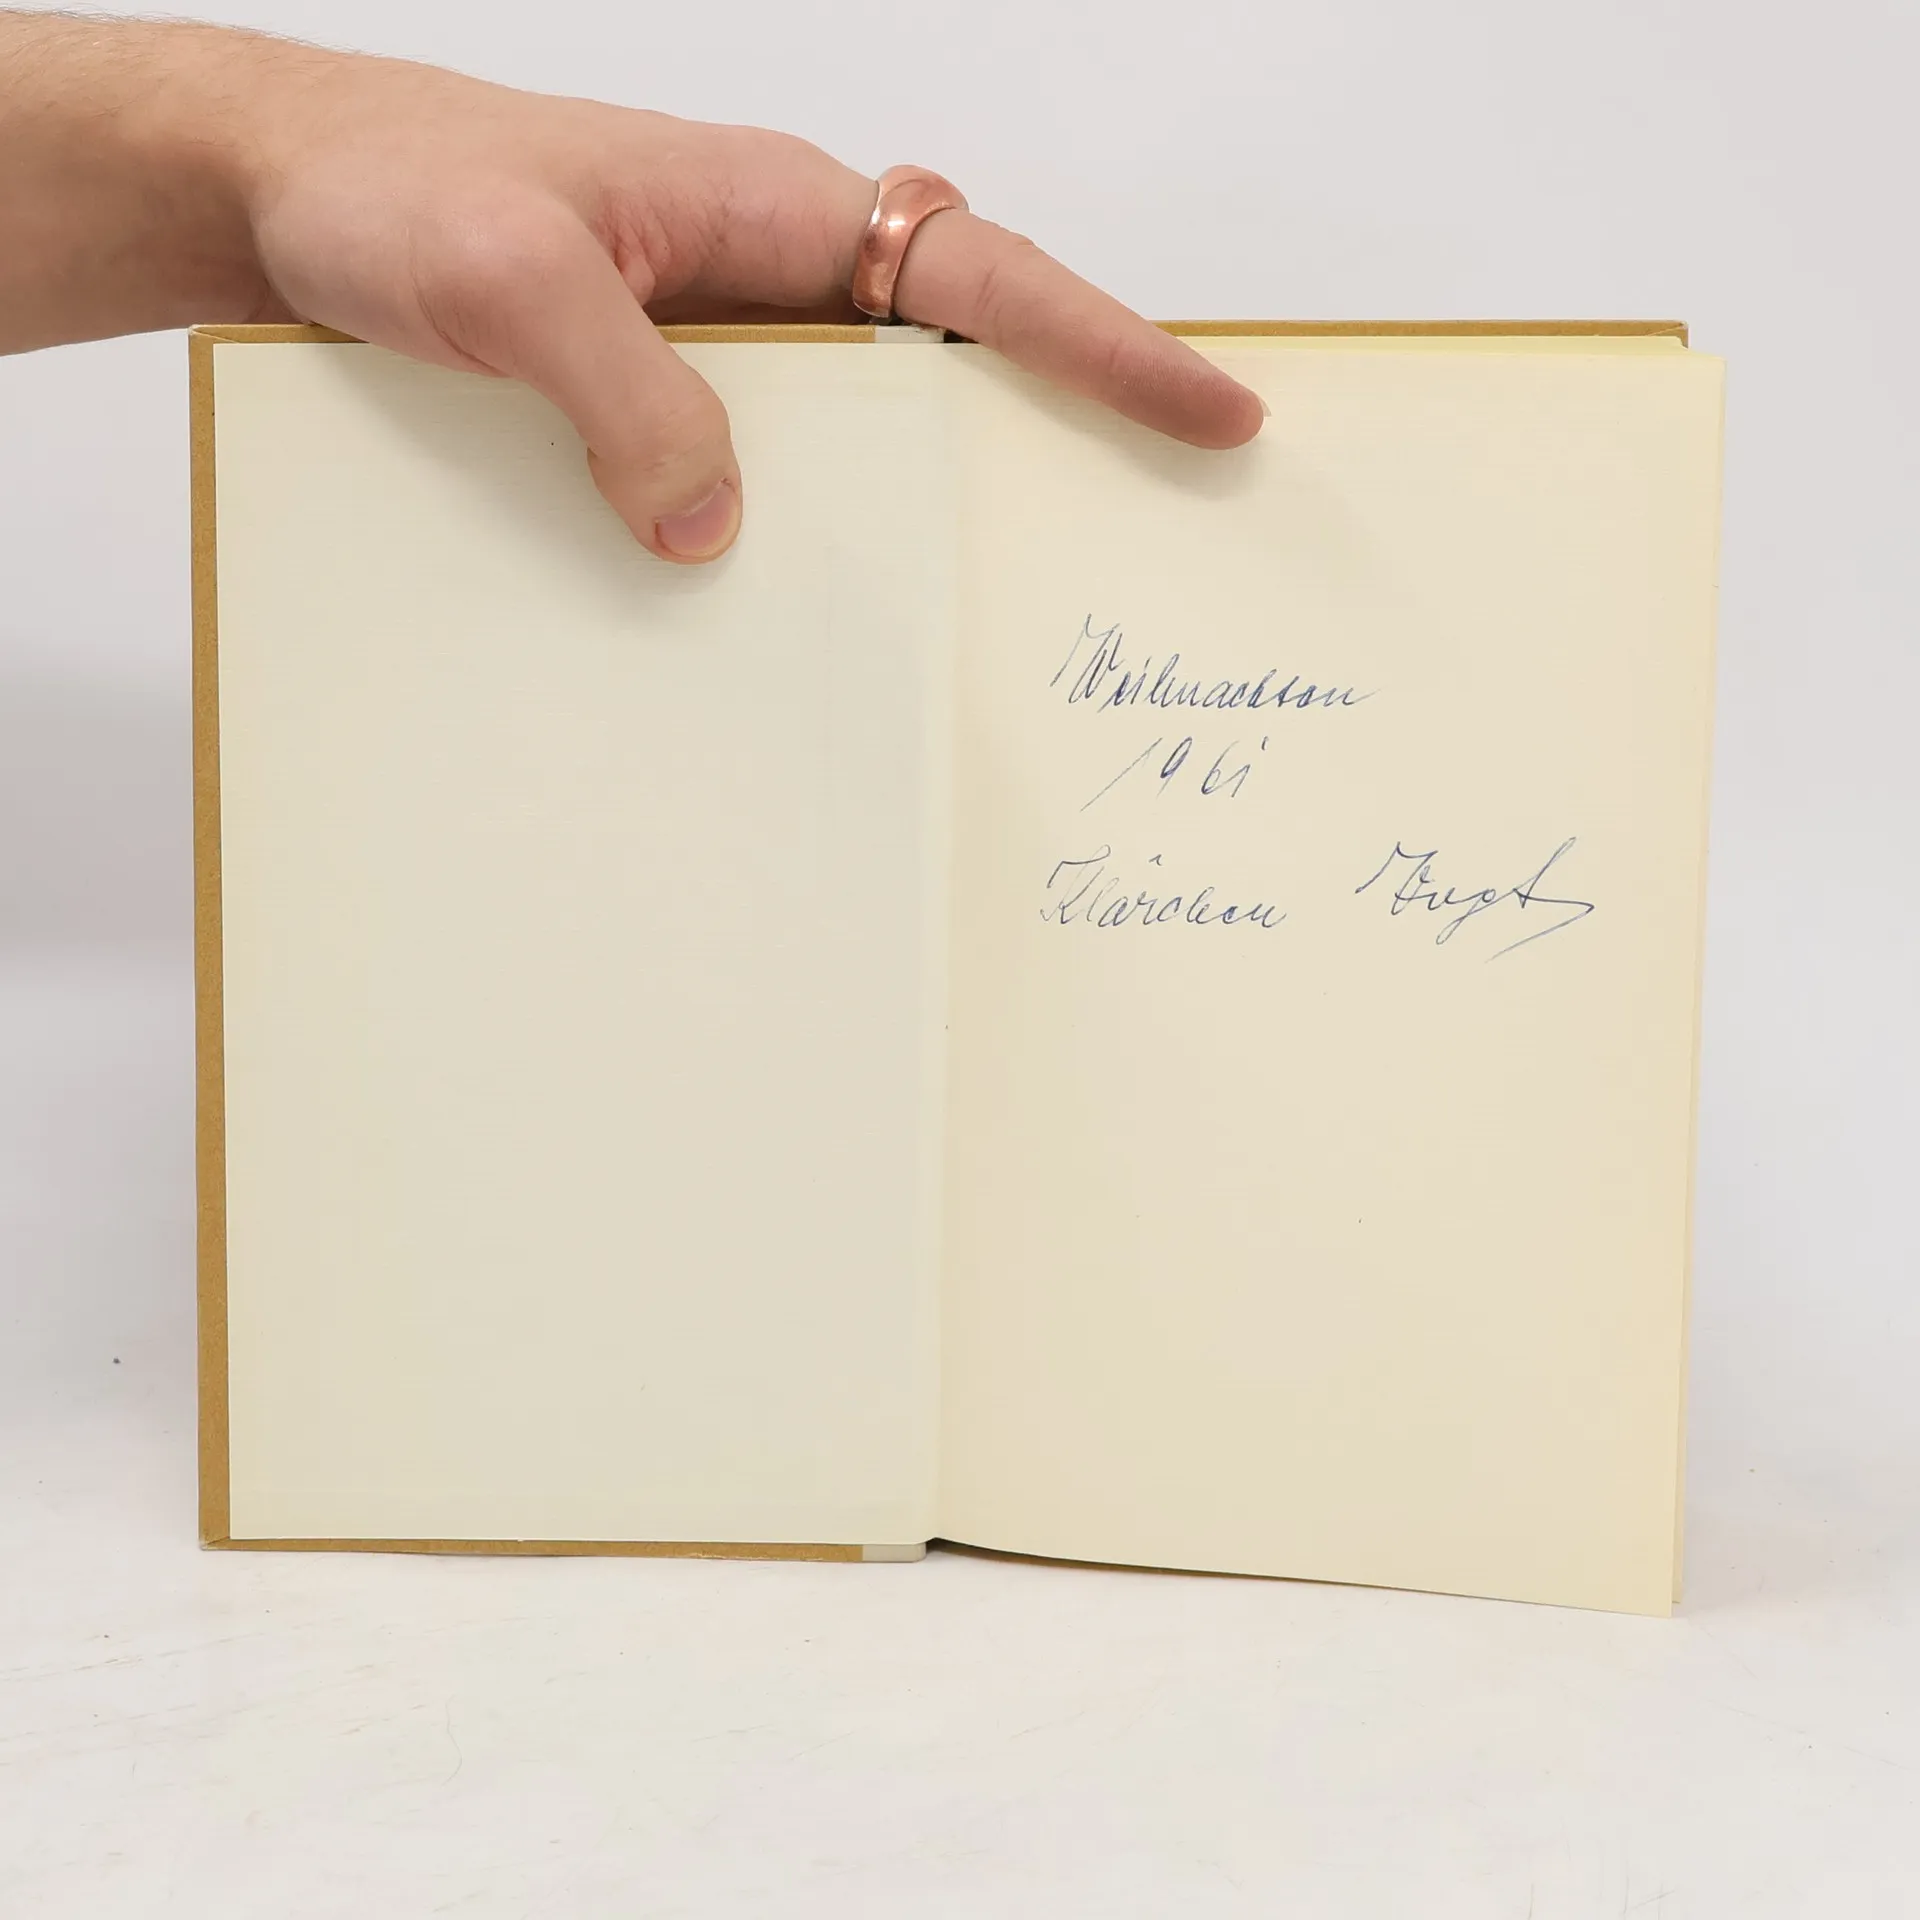 Weihnachten
1961
Klärchen Vogt